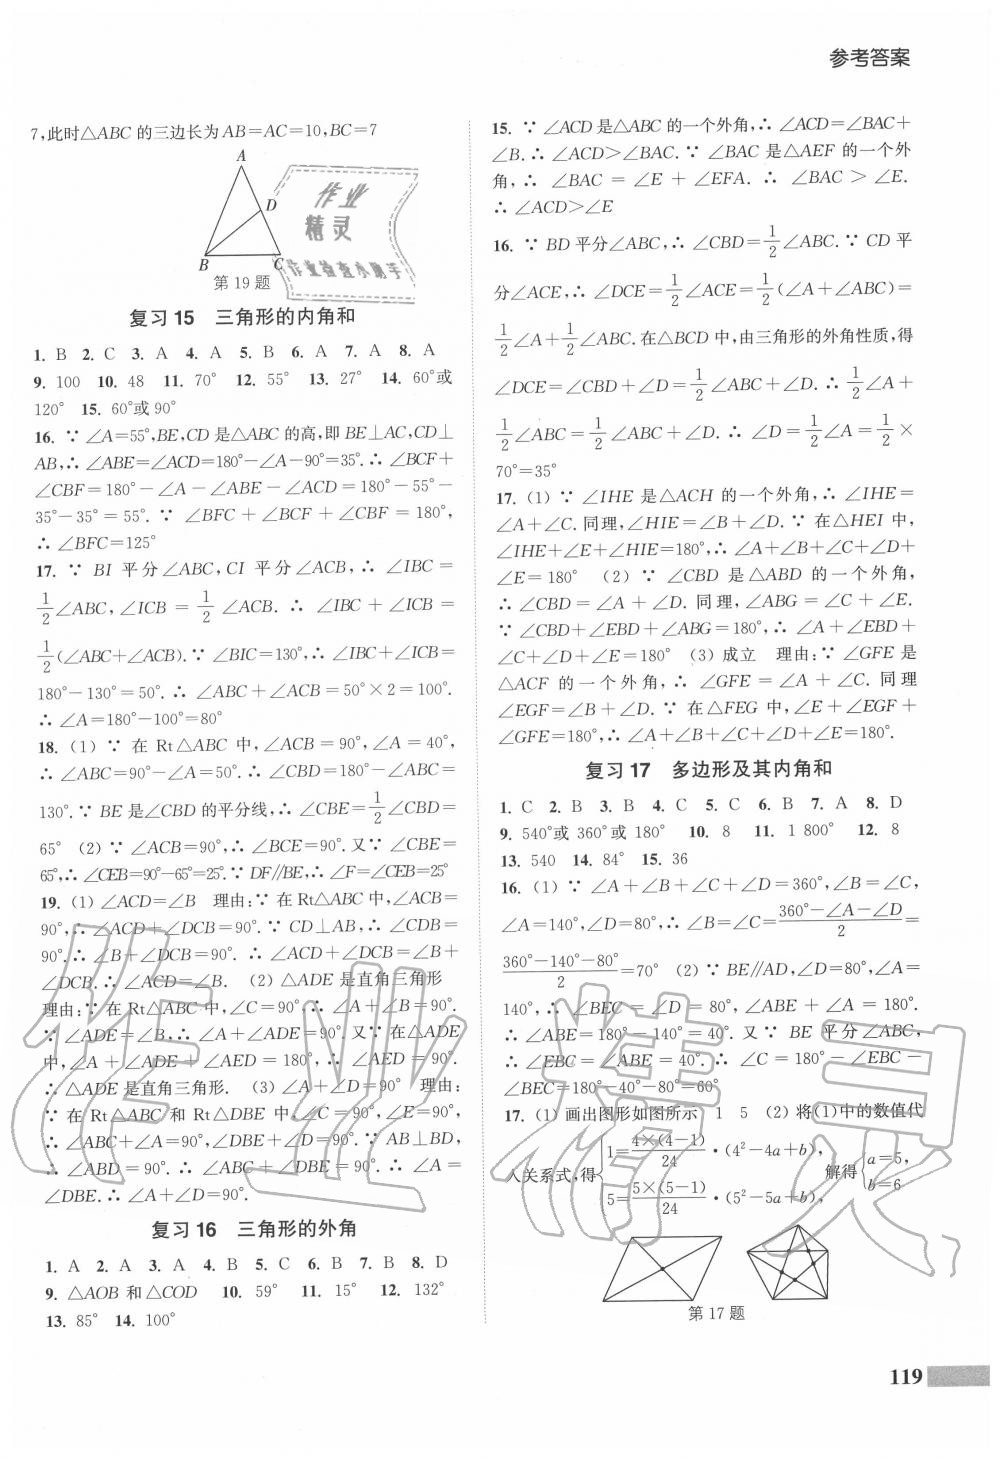 参考答案
7,此时△ABC 的三边长为 AB=AC=10,BC=7
A
D
B
C
第 19 题
作业
精灵
作业检查小助手
复习 15 三角形的内角和
1. B 2. C 3. A 4. A 5. B 6. A 7. A 8. A
9. 100 10. 48 11. 70° 12. 55° 13. 27° 14. 60°或
120° 15. 60°或 90°
16. ∵ ∠A=55°,BE,CD 是△ABC 的高,即 BE⊥AC,CD⊥
AB,∴ ∠ABE=∠ACD=180°-∠A-90°=35°.∴ ∠BCF+
∠CBF=180°-∠A-∠ABE-∠ACD=180°-55°-
35°-35°=55°. ∵ ∠BFC+∠BCF+∠CBF=180°,
∴ ∠BFC=125°
17. ∵ BI 平分∠ABC,CI 平分∠ACB,∴ ∠IBC=
1/2∠ABC,∠ICB=1/2∠ACB. ∴ ∠IBC+∠ICB=
1/2(∠ABC+∠ACB).∵ ∠BIC=130°,∴ ∠IBC+∠ICB=
180°-130°=50°.∴ ∠ABC+∠ACB=50°×2=100°.
∴ ∠A=180°-100°=80°
18. (1) ∵ 在 Rt△ABC 中,∠ACB=90°,∠A=40°,
∴ ∠ABC=90°-∠A=50°.∴ ∠CBD=180°-∠ABC=
130°.∵ BE 是∠CBD 的平分线,∴ ∠CBE=1/2∠CBD=
65° (2) ∵ ∠ACB=90°,∴ ∠BCE=90°.又∵ ∠CBE=
65°,∴ ∠CEB=90°-65°=25°.∵ DF∥BE,∴ ∠F=∠CEB=25°
19. (1) ∠ACD=∠B 理由:∵ 在 Rt△ABC 中,∠ACB=
90°,∴ ∠ACD+∠DCB=90°.∵ CD⊥AB,∴ ∠CDB=
90°.∴ ∠B+∠DCB=90°.∴ ∠ACD+∠DCB=∠B+
∠DCB.∴ ∠ACD=∠B. (2) △ADE 是直角三角形
理由:∵ 在 Rt△ABC 中,∠C=90°,∴ ∠A+∠B=90°.
∵ ∠ADE=∠B,∴ ∠A+∠ADE=90°.又∵ 在△ADE
中,∠A+∠ADE+∠AED=180°,∴ ∠AED=90°.
∴ △ADE 是直角三角形. (3) ∠A+∠D=90° 理由:
∵ 在 Rt△ABC 和 Rt△DBE 中,∠C=90°,∠E=90°,
∴ ∠ABC+∠A=90°,∠DBE+∠D=90°.∵ AB⊥BD,
∴ ∠ABD=90°.∴ ∠ABC+∠DBE=90°.∴ ∠A=
∠DBE.∴ ∠A+∠D=90°.
复习 16 三角形的外角
1. A 2. A 3. A 4. B 5. C 6. B 7. B 8. D
9. △AOB 和△COD 10. 59° 11. 15° 12. 132°
13. 85° 14. 100°
15. ∵ ∠ACD 是△ABC 的一个外角,∴ ∠ACD=∠BAC+
∠B.∴ ∠ACD>∠BAC.∵ ∠BAC 是△AEF 的一个外
角,∴ ∠BAC=∠E+∠EFA. ∴ ∠BAC>∠E.
∴ ∠ACD>∠E
16. ∵ BD 平分∠ABC,∴ ∠CBD=1/2∠ABC.∵ CD 平
分∠ACE,∴ ∠DCE=1/2∠ACE=1/2(∠A+∠ABC)=
1/2∠A+1/2∠ABC.在△BCD 中,由三角形的外角性质,得
∠DCE=∠CBD+∠D=1/2∠ABC+∠D.∴ 1/2∠A+
1/2∠ABC=1/2∠ABC+∠D.∴ ∠D=1/2∠A=1/2×
70°=35°
17. (1) ∵ ∠IHE 是△ACH 的一个外角,∴ ∠IHE=
∠A+∠C.同理,∠HIE=∠B+∠D.∵ 在△HEI 中,
∠IHE+∠E+∠HIE=180°,∴ ∠A+∠B+∠C+∠D+
∠E=180° (2) ∵ ∠CBD 是△ABD 的一个外角,
∴ ∠CBD=∠A+∠D. 同理,∠ABG=∠C+∠E.
∵ ∠CBD+∠EBD+∠ABG=180°,∴ ∠A+∠EBD+
∠C+∠D+∠E=180° (3) 成立 理由:∵ ∠GFE 是
△ACF 的一个外角,∴ ∠GFE=∠A+∠C.同理
∠EGF=∠B+∠D.∵ 在△FEG 中,∠E+∠EGF+
∠GFE=180°,∴ ∠A+∠B+∠C+∠D+∠E=180°.
复习 17 多边形及其内角和
1. C 2. B 3. B 4. C 5. C 6. B 7. A 8. D
9. 540°或 360°或 180° 10. 8 11. 1 800° 12. 8
13. 540 14. 84° 15. 36
16. (1) ∵ ∠A+∠B+∠C+∠D=360°,∠B=∠C,
∠A=140°,∠D=80°,∴ ∠B=∠C=(360°-∠A-∠D)/2=
(360°-140°-80°)/2=70° (2) ∵ BE∥AD,∠D=80°,∠A=
140°,∴ ∠BEC=∠D=80°,∠ABE+∠A=180°.
∴ ∠ABE=180°-140°=40°.又∵ BE 平分∠ABC,
∴ ∠EBC=∠ABE=40°.∴ ∠C=180°-∠EBC-
∠BEC=180°-40°-80°=60°
17. (1) 画出图形如图所示 1 5 (2) 将(1)中的数值代
入关系式,得{1=4×(4-1)/24·(4²-4a+b), 5=5×(5-1)/24·(5²-5a+b), 解得{a=5, b=6
第 17 题
119
作业精灵